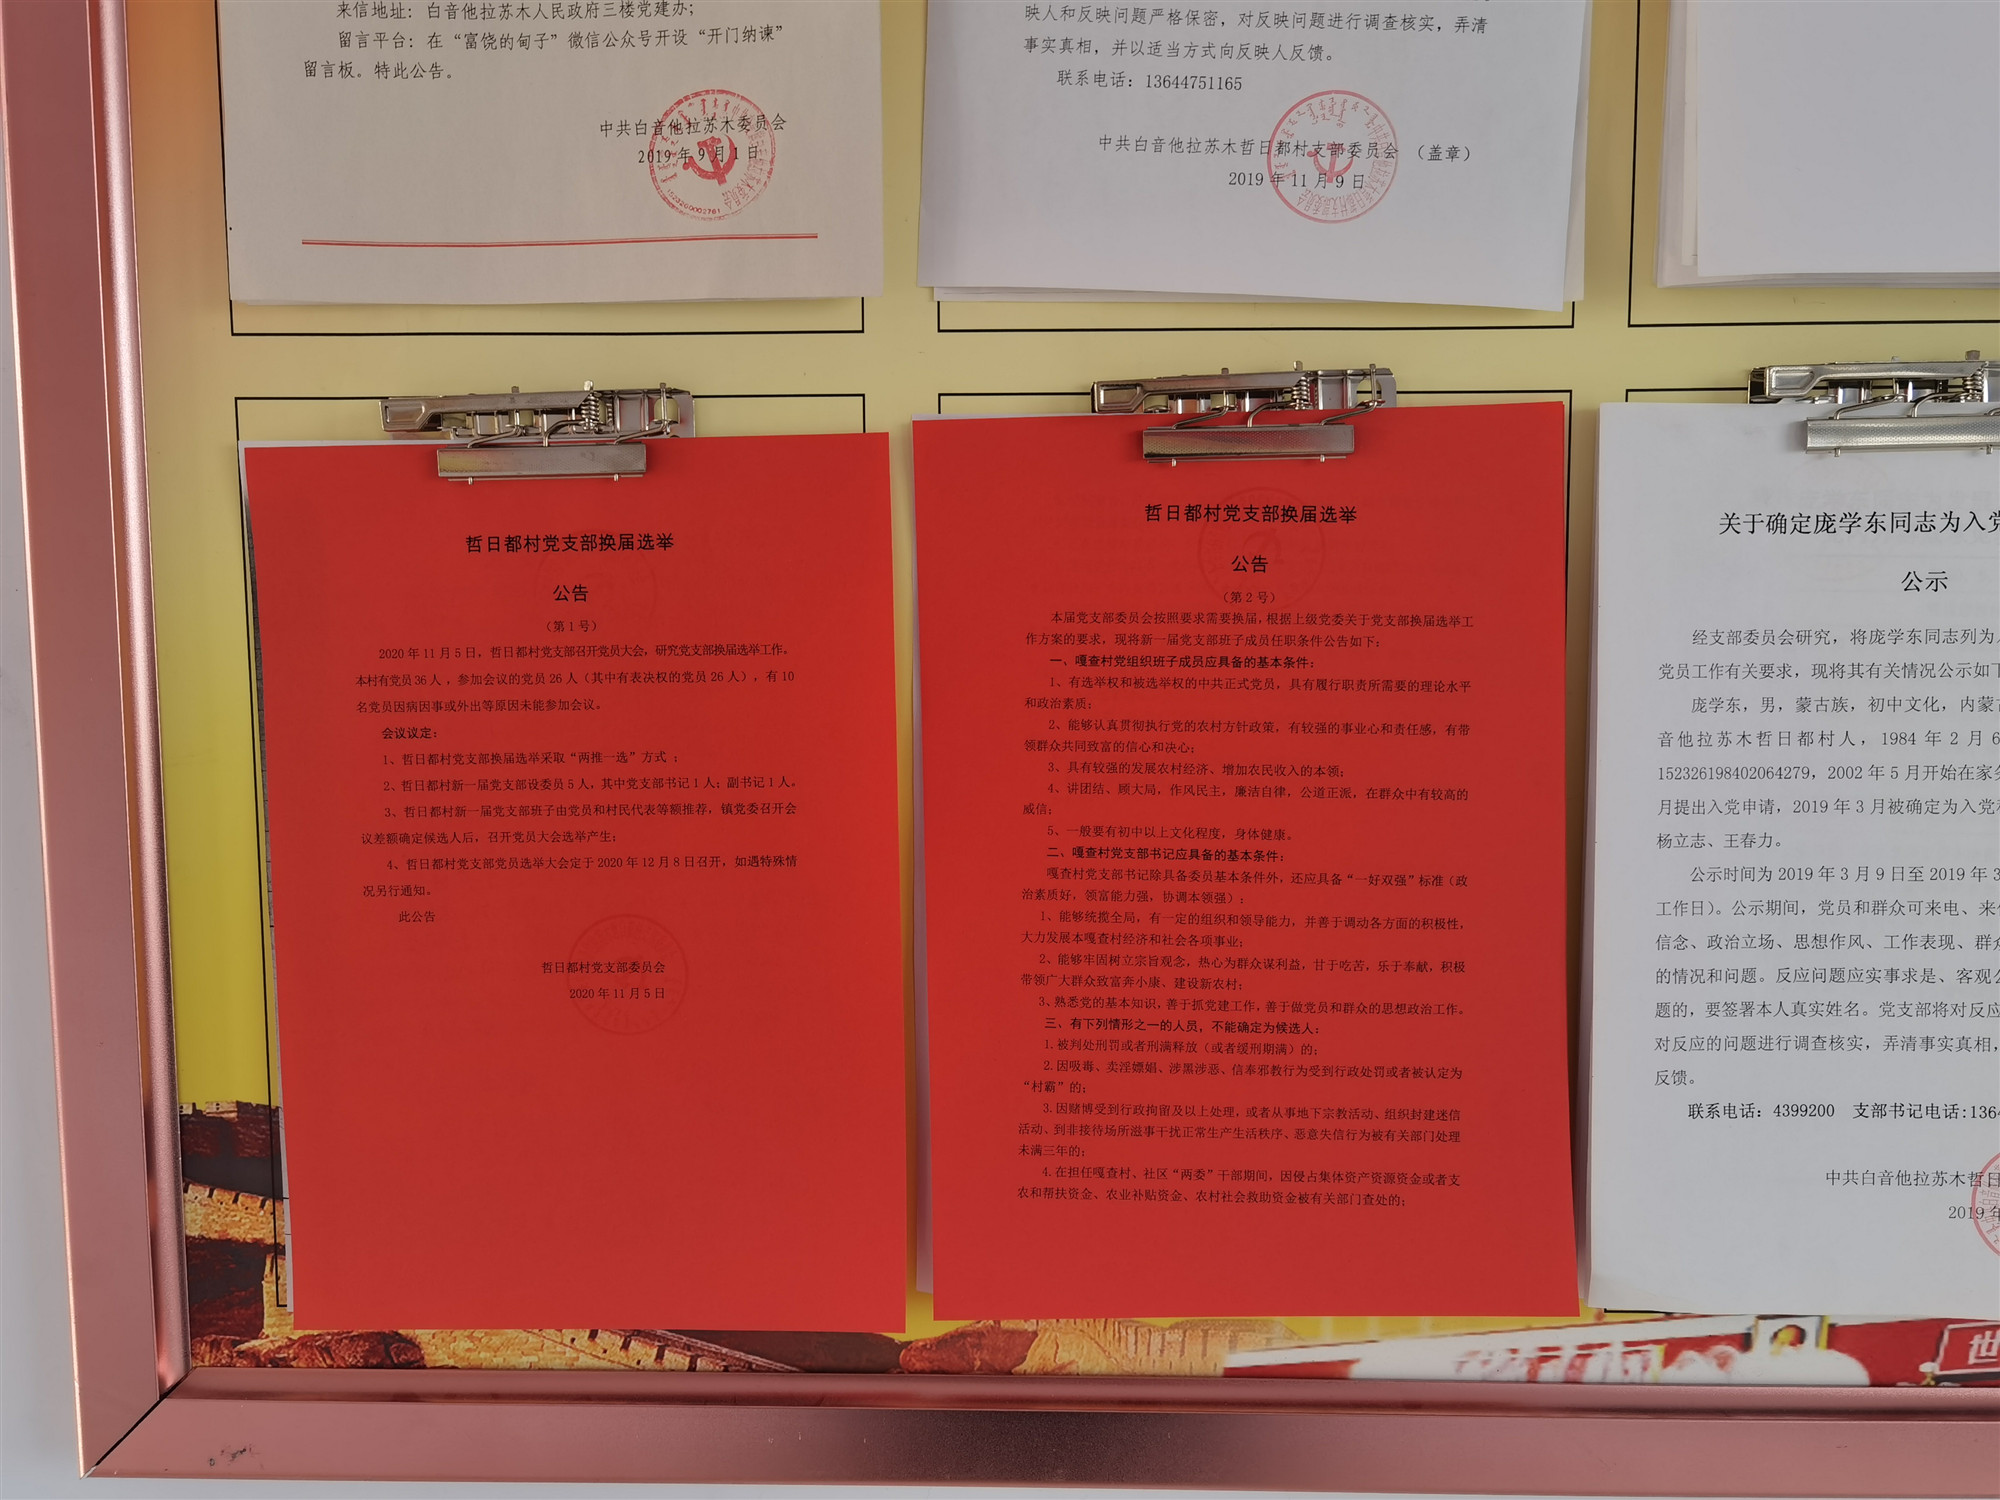 来信地址：白音他拉苏木人民政府三楼党建办；
留言平台：在“富饶的甸子”微信公众号开设“开门纳谏”
留言板。特此公告。
中共白音他拉苏木委员会
2019年9月1日
映人和反映问题严格保密，对反映问题进行调查核实，弄清
事实真相，并以适当方式向反映人反馈。
联系电话：13644751165
中共白音他拉苏木哲日都村支部委员会（盖章）
2019年11月9日
哲日都村党支部换届选举
公告
（第1号）
2020年11月5日，哲日都村党支部召开党员大会，研究党支部换届选举工作。
本村有党员36人，参加会议的党员26人（其中有表决权的党员26人），有10
名党员因病因事或外出等原因未能参加会议。
会议议定：
1、哲日都村党支部换届选举采取“两推一选”方式；
2、哲日都村新一届党支部设委员5人，其中党支部书记1人；副书记1人。
3、哲日都村新一届党支部班子由党员和村民代表等额推荐，镇党委召开会
议差额确定候选人后，召开党员大会选举产生；
4、哲日都村党支部党员选举大会定于2020年12月8日召开，如遇特殊情
况另行通知。
此公告
哲日都村党支部委员会
2020年11月5日
哲日都村党支部换届选举
公告
（第2号）
本届党支部委员会按照要求需要换届，根据上级党委关于党支部换届选举工
作方案的要求，现将新一届党支部班子成员任职条件公告如下：
一、嘎查村党组织班子成员应具备的基本条件：
1、有选举权和被选举权的中共正式党员，具有履行职责所需要的理论水平
和政治素质；
2、能够认真贯彻执行党的农村方针政策，有较强的事业心和责任感，有带
领群众共同致富的信心和决心；
3、具有较强的发展农村经济、增加农民收入的本领；
4、讲团结、顾大局，作风民主，廉洁自律，公道正派，在群众中有较高的
威信；
5、一般要有初中以上文化程度，身体健康。
二、嘎查村党支部书记应具备的基本条件：
嘎查村党支部书记除具备委员基本条件外，还应具备“一好双强”标准（政
治素质好，领富能力强，协调本领强）：
1、能够统揽全局，有一定的组织和领导能力，并善于调动各方面的积极性，
大力发展本嘎查村经济和社会各项事业；
2、能够牢固树立宗旨观念，热心为群众谋利益，甘于吃苦，乐于奉献，积极
带领广大群众致富奔小康、建设新农村；
3、熟悉党的基本知识，善于抓党建工作，善于做党员和群众的思想政治工作。
三、有下列情形之一的人员，不能确定为候选人：
1.被判处刑罚或者刑满释放（或者缓刑期满）的；
2.因吸毒、卖淫嫖娼、涉黑涉恶、信奉邪教行为受到行政处罚或者被认定为
“村霸”的；
3.因赌博受到行政拘留及以上处理，或者从事地下宗教活动、组织封建迷信
活动、到非接待场所滋事干扰正常生产生活秩序、恶意失信行为被有关部门处理
未满三年的；
4.在担任嘎查村、社区“两委”干部期间，因侵占集体资产资源资金或者支
农和帮扶资金、农业补贴资金、农村社会救助资金被有关部门查处的；
关于确定庞学东同志为入党
公示
经支部委员会研究，将庞学东同志列为
党员工作有关要求，现将其有关情况公示如下
庞学东，男，蒙古族，初中文化，内蒙古
音他拉苏木哲日都村人，1984年2月6
152326198402064279，2002年5月开始在家务
月提出入党申请，2019年3月被确定为入党积
杨立志、王春力。
公示时间为2019年3月9日至2019年3
工作日）。公示期间，党员和群众可来电、来信
信念、政治立场、思想作风、工作表现、群众
的情况和问题。反应问题应实事求是、客观公
题的，要签署本人真实姓名。党支部将对反应
对反应的问题进行调查核实，弄清事实真相，
反馈。
联系电话：4399200 支部书记电话:1364
中共白音他拉苏木哲日
2019年
世